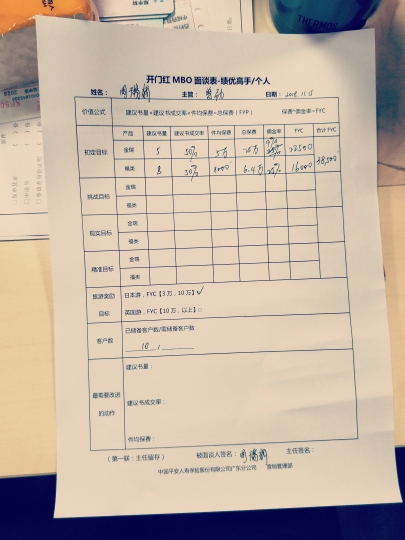 THERMOS
开门红 MBO 面谈表-绩优高手/个人
姓名： 主管： 日期：2018.11.15
价值公式 建议书量*建议书成交率*件均保费=总保费（FYP） 保费*佣金率=FYC
产品 建议书量 建议书成交率 件均保费 总保费 佣金率 FYC 合计 FYC
初定目标 金瑞 5 50% 5万 9% 22500 38,500
福类 8 8000 6.4万 16000
挑战目标 金瑞
福类
现实目标 金瑞
福类
精准目标 金瑞
福类
旅游奖励目标 日本游，FYC【3 万，10 万】☑
英国游，FYC【10 万，以上】□
客户数 已储备客户数/需储备客户数
10 /
最需要改进的动作 建议书量：
建议书成交率：
件均保费：
（第一联：主任留存） 被面谈人签名： 主任签名：
中国平安人寿保险股份有限公司广东分公司 营销管理部